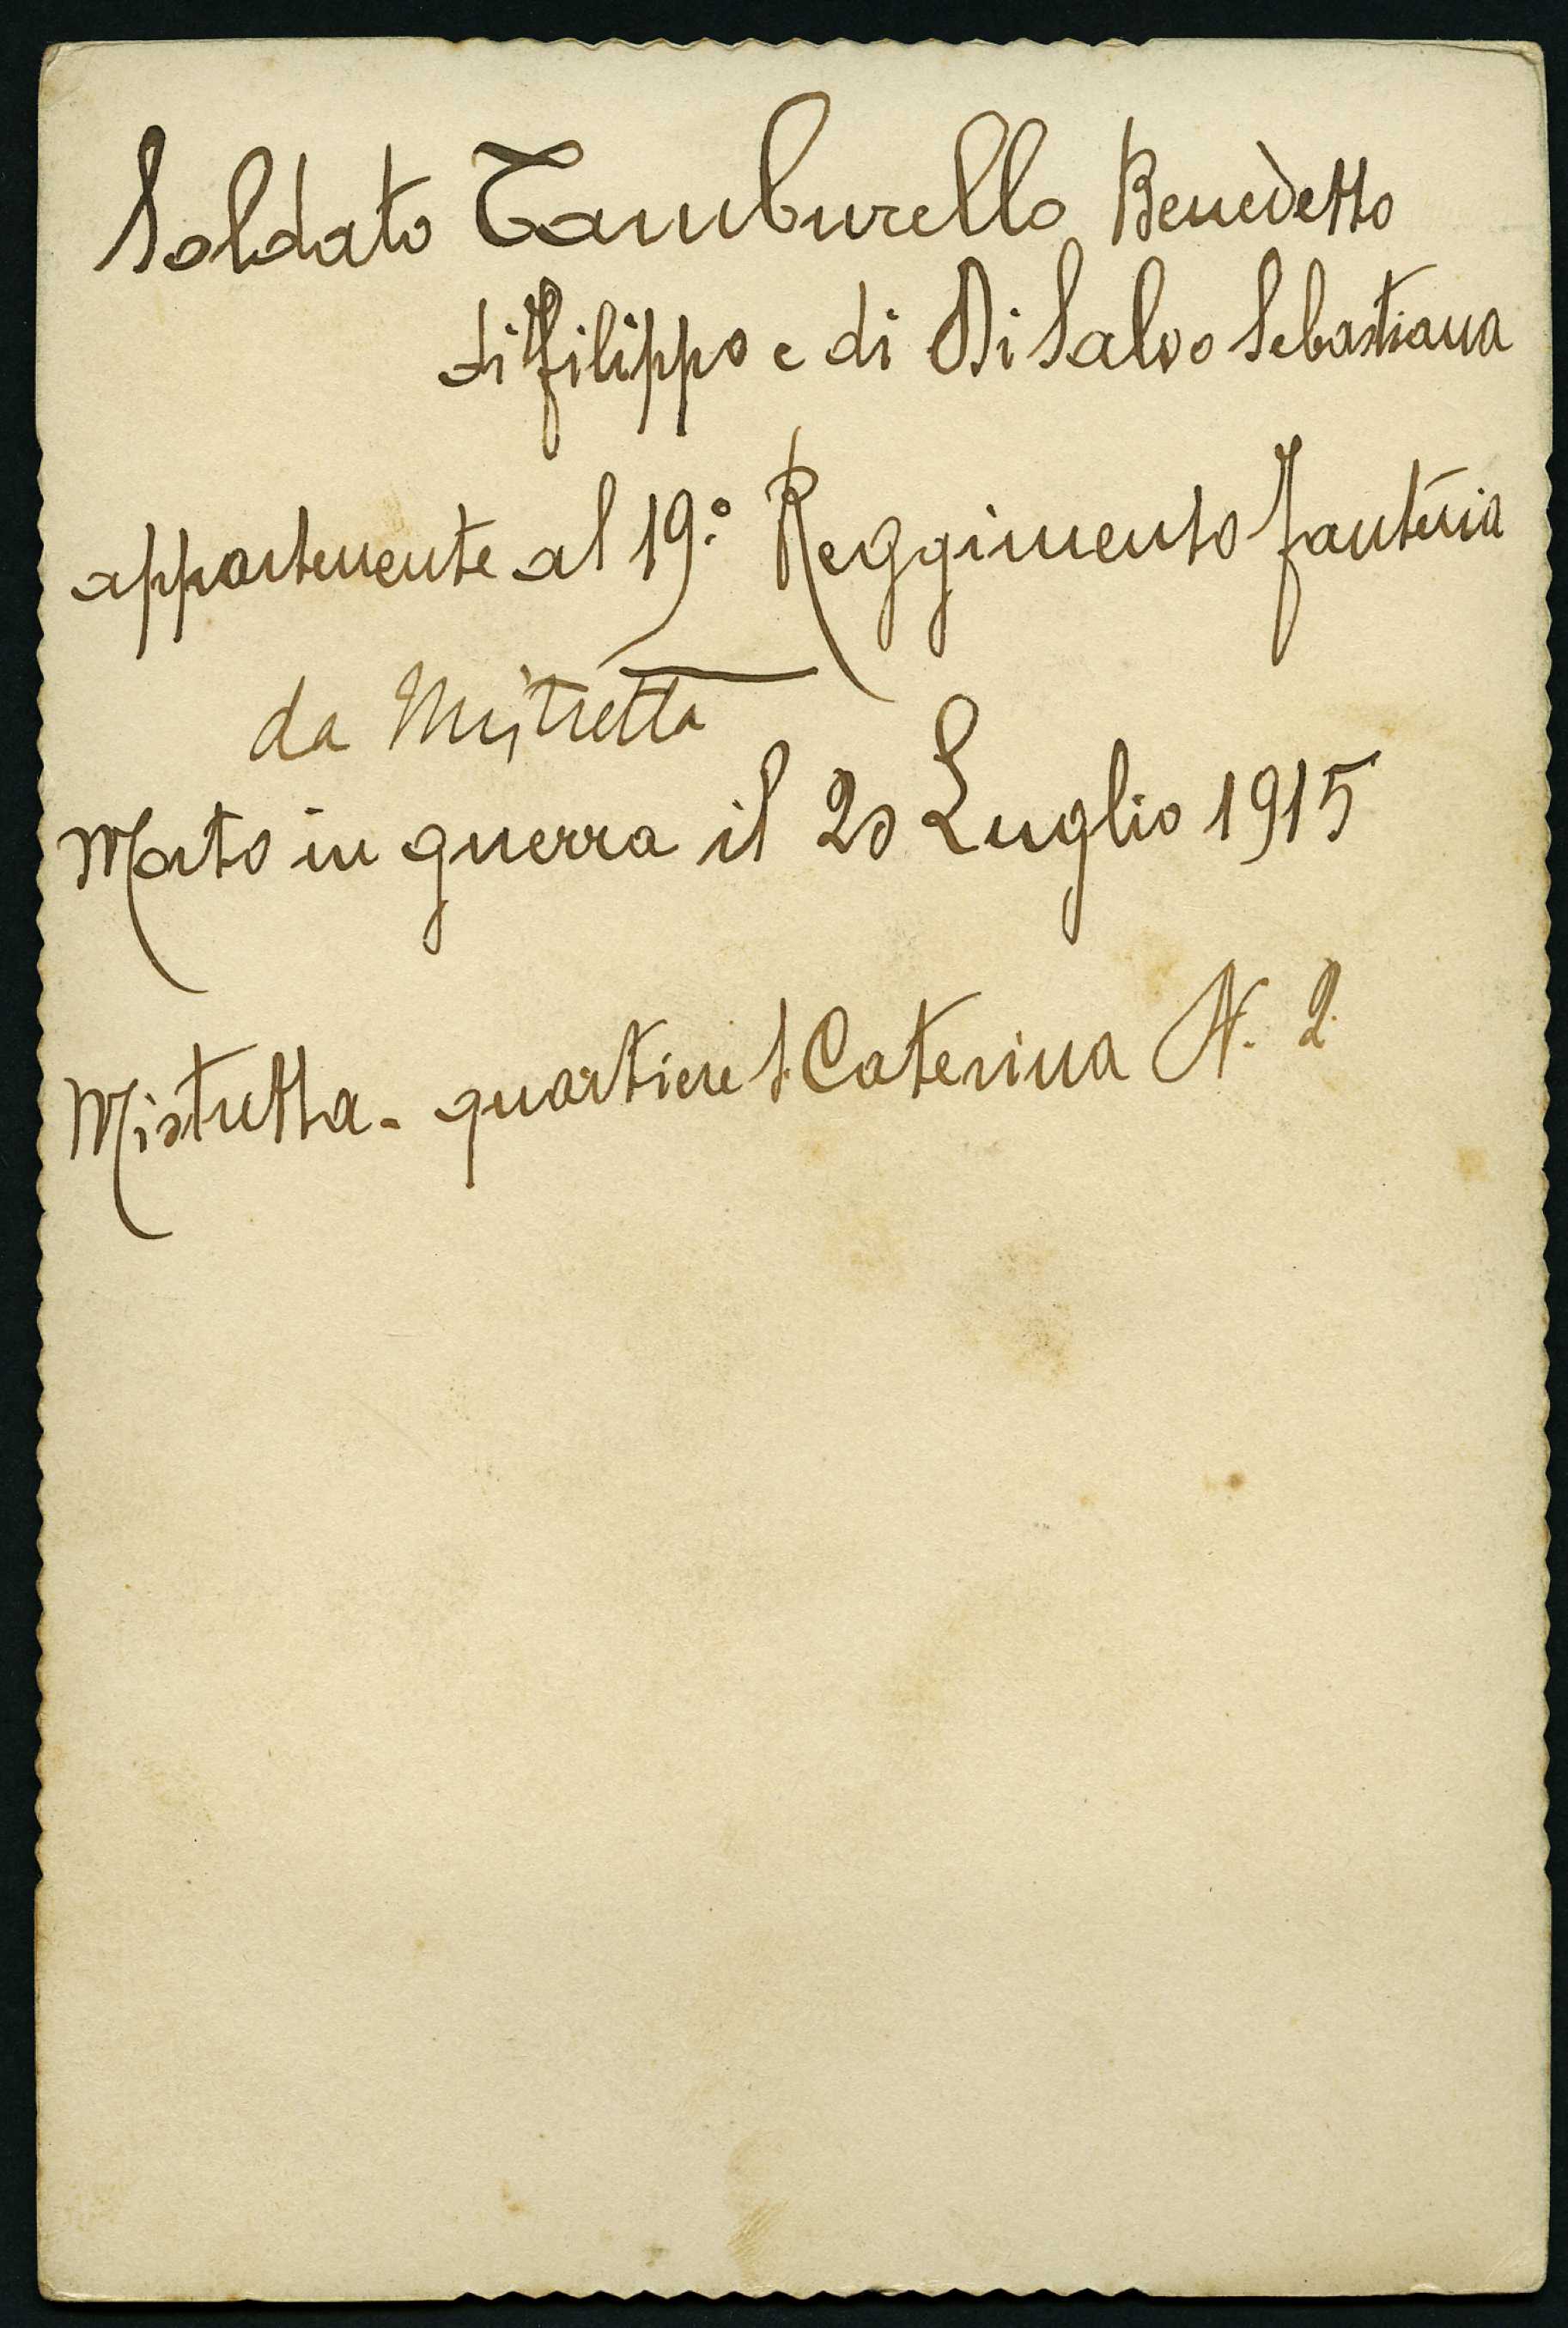 Soldato Tamburello Benedetto
di Filippo e di Di Salvo Sebastiana
appartenente al 19.° Reggimento Fanteria
da Mistretta
Morto in guerra il 20 Luglio 1915
Mistretta - quartiere S. Caterina N. 2